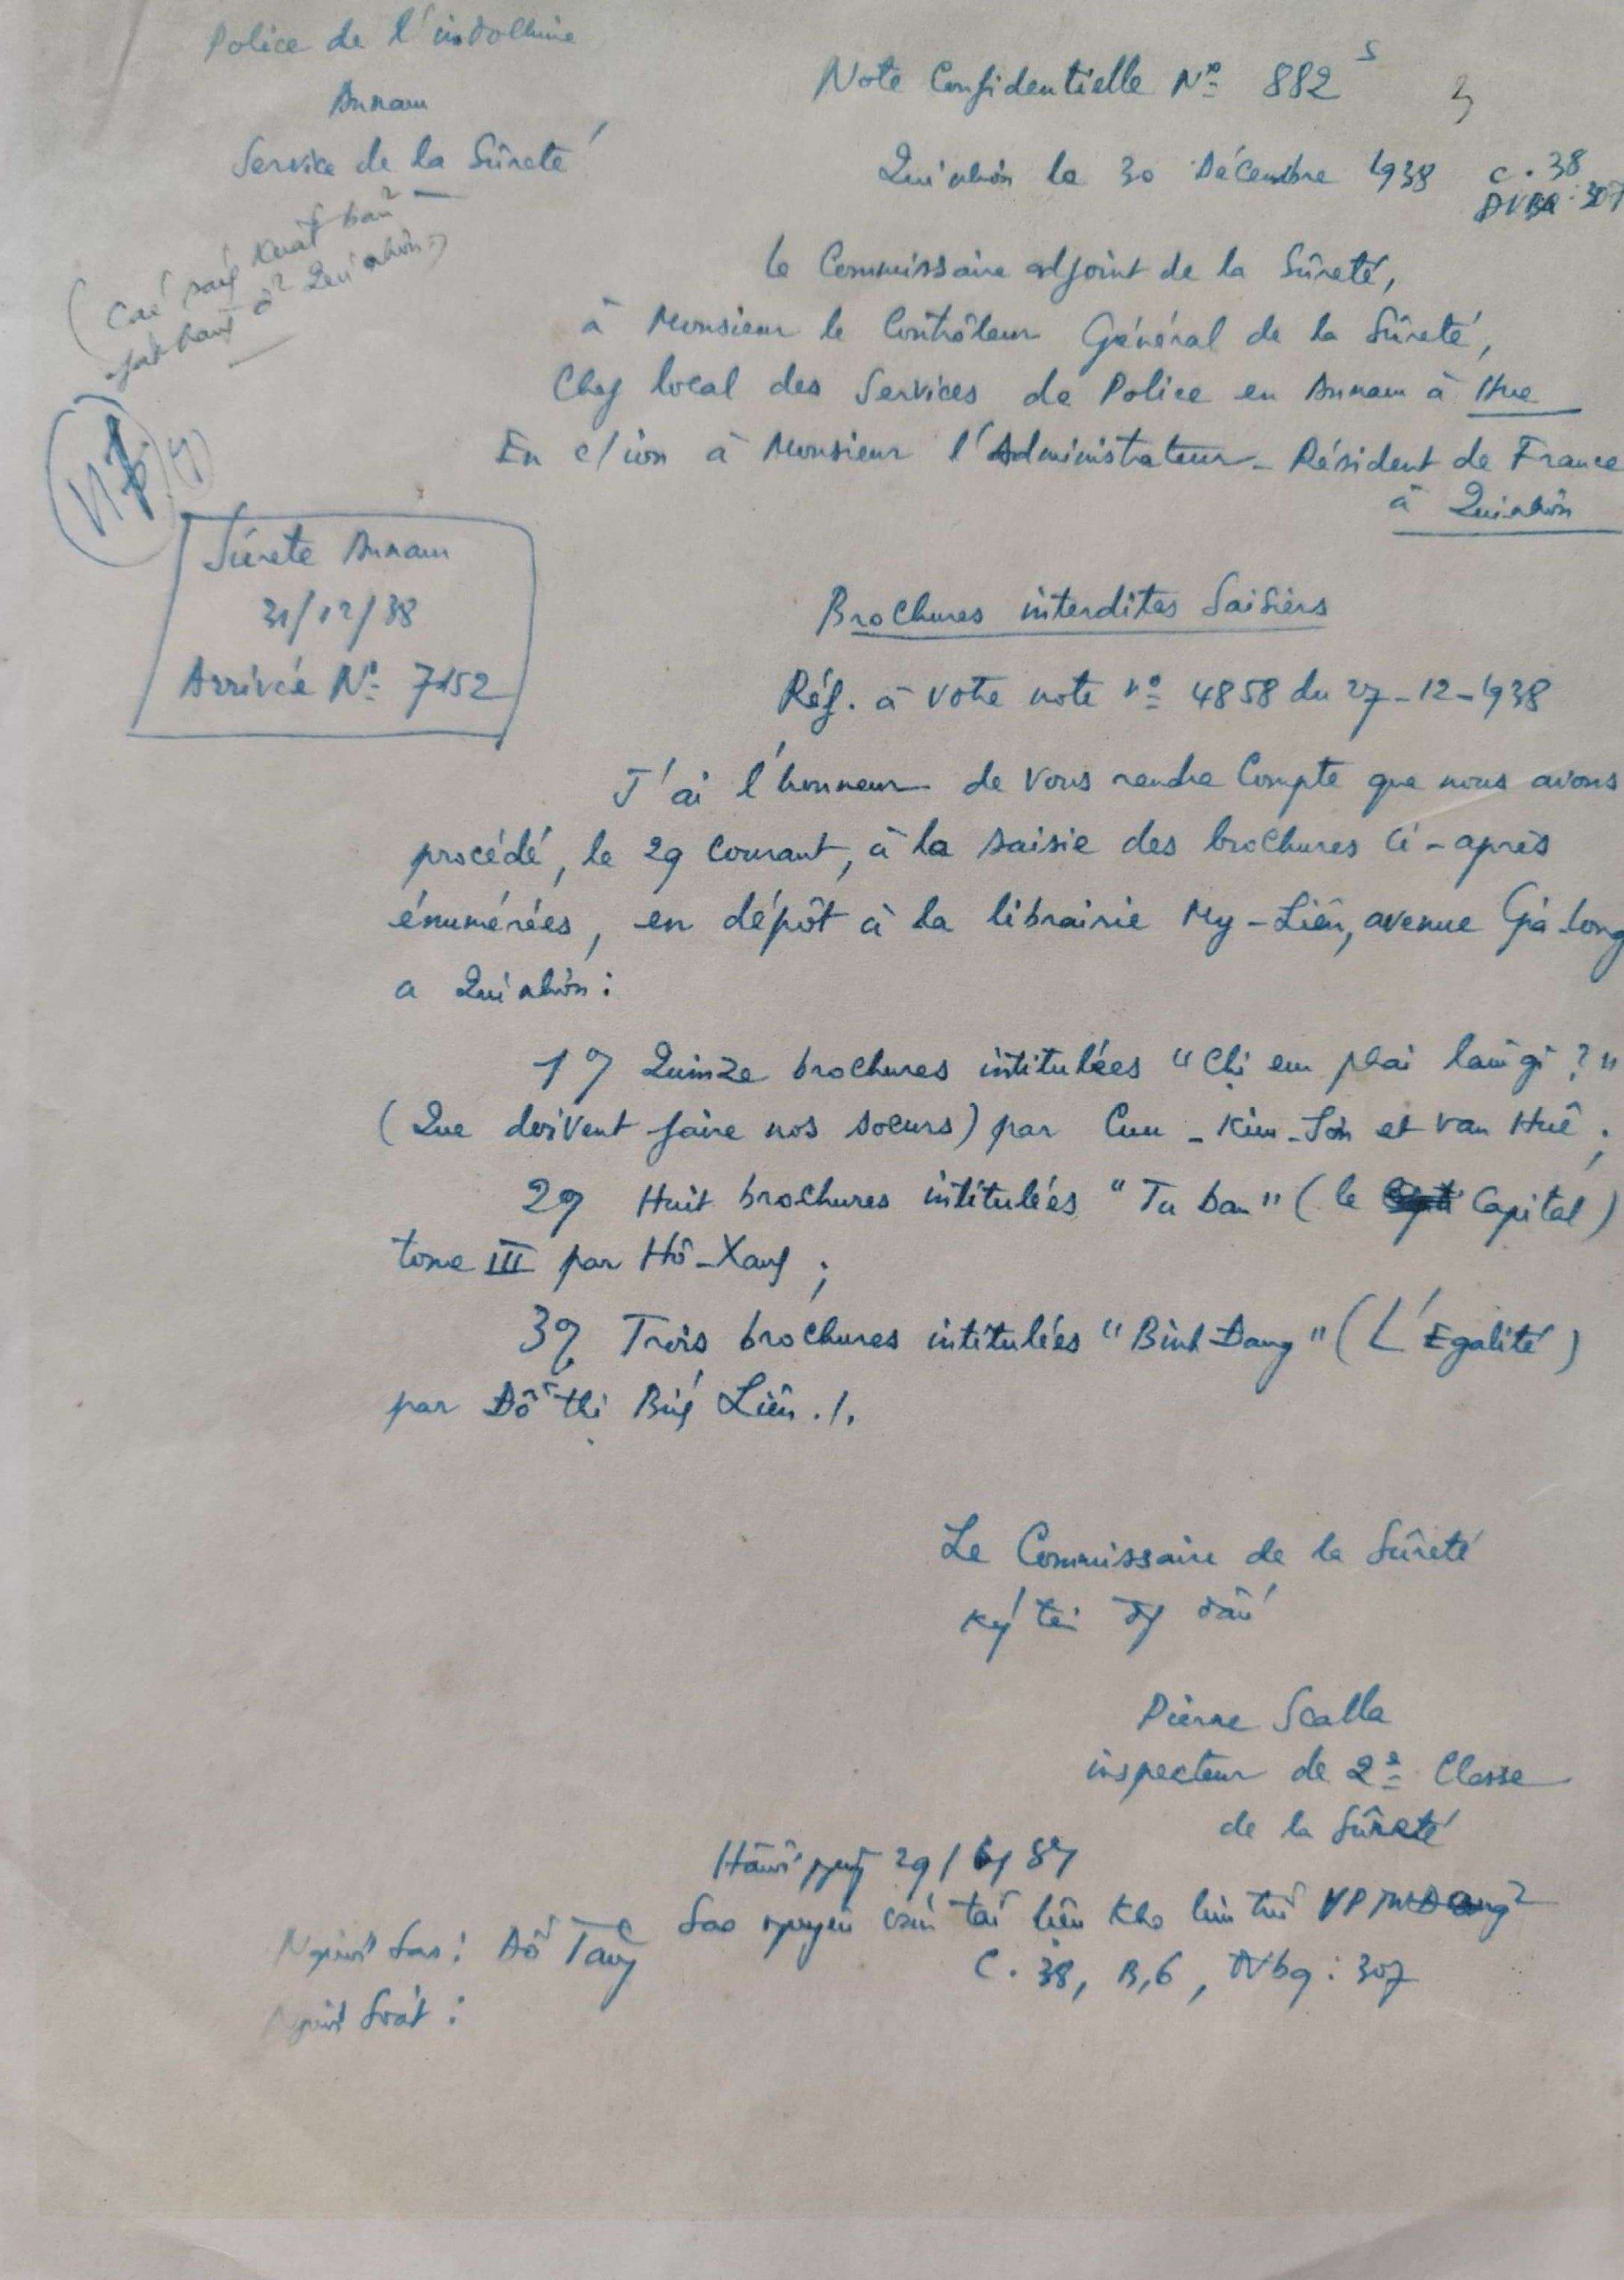 Police de l'indochine
Annam
Service de la Sûreté
Note Confidentielle Nº 882 s
Quinhơn le 30 Décembre 1938
c. 38
307
xuất bản
ở Quinhơn
le Commissaire adjoint de la Sûreté,
à Monsieur le Contrôleur Général de la Sûreté,
Chef local des Services de Police en Annam à Hue
En c/ion à Monsieur l'Administrateur - Résident de France
à Quinhơn
Sûrete Annam
31/12/38
Arrivée Nº 7152
Brochures interdites Saisies
Réf. à votre note nº 4858 du 27-12-1938
J'ai l'honneur de vous rendre Compte que nous avons
procédé, le 29 Courant, à la saisie des brochures ci-après
énumérées, en dépôt à la librairie My-Liên, avenue Gia-long
a Quinhơn :
1º/ Quinze brochures intitulées "Chị em phải làm gì ?"
(Que doivent faire nos soeurs) par Cuu-Kim-Sơn et Van Huê ;
2º/ Huit brochures intitulées "Tu ban" (le Capital)
tome III par Hô-Xanh ;
3º/ Trois brochures intitulées "Binh Đang" (L'Egalité)
par Đỗ thị Bích Liên ./.
Le Commissaire de la Sûreté
Ký tên đóng dấu
Pierre Scalla
inspecteur de 2e Classe
de la Sûreté
Hà nội ngày 29/6/87
Sao nguyên văn tài liệu kho lưu trữ VPTW Đảng
C. 38, B,6, ĐVbq : 307
Người sao : Đỗ Tăng
Người soát :